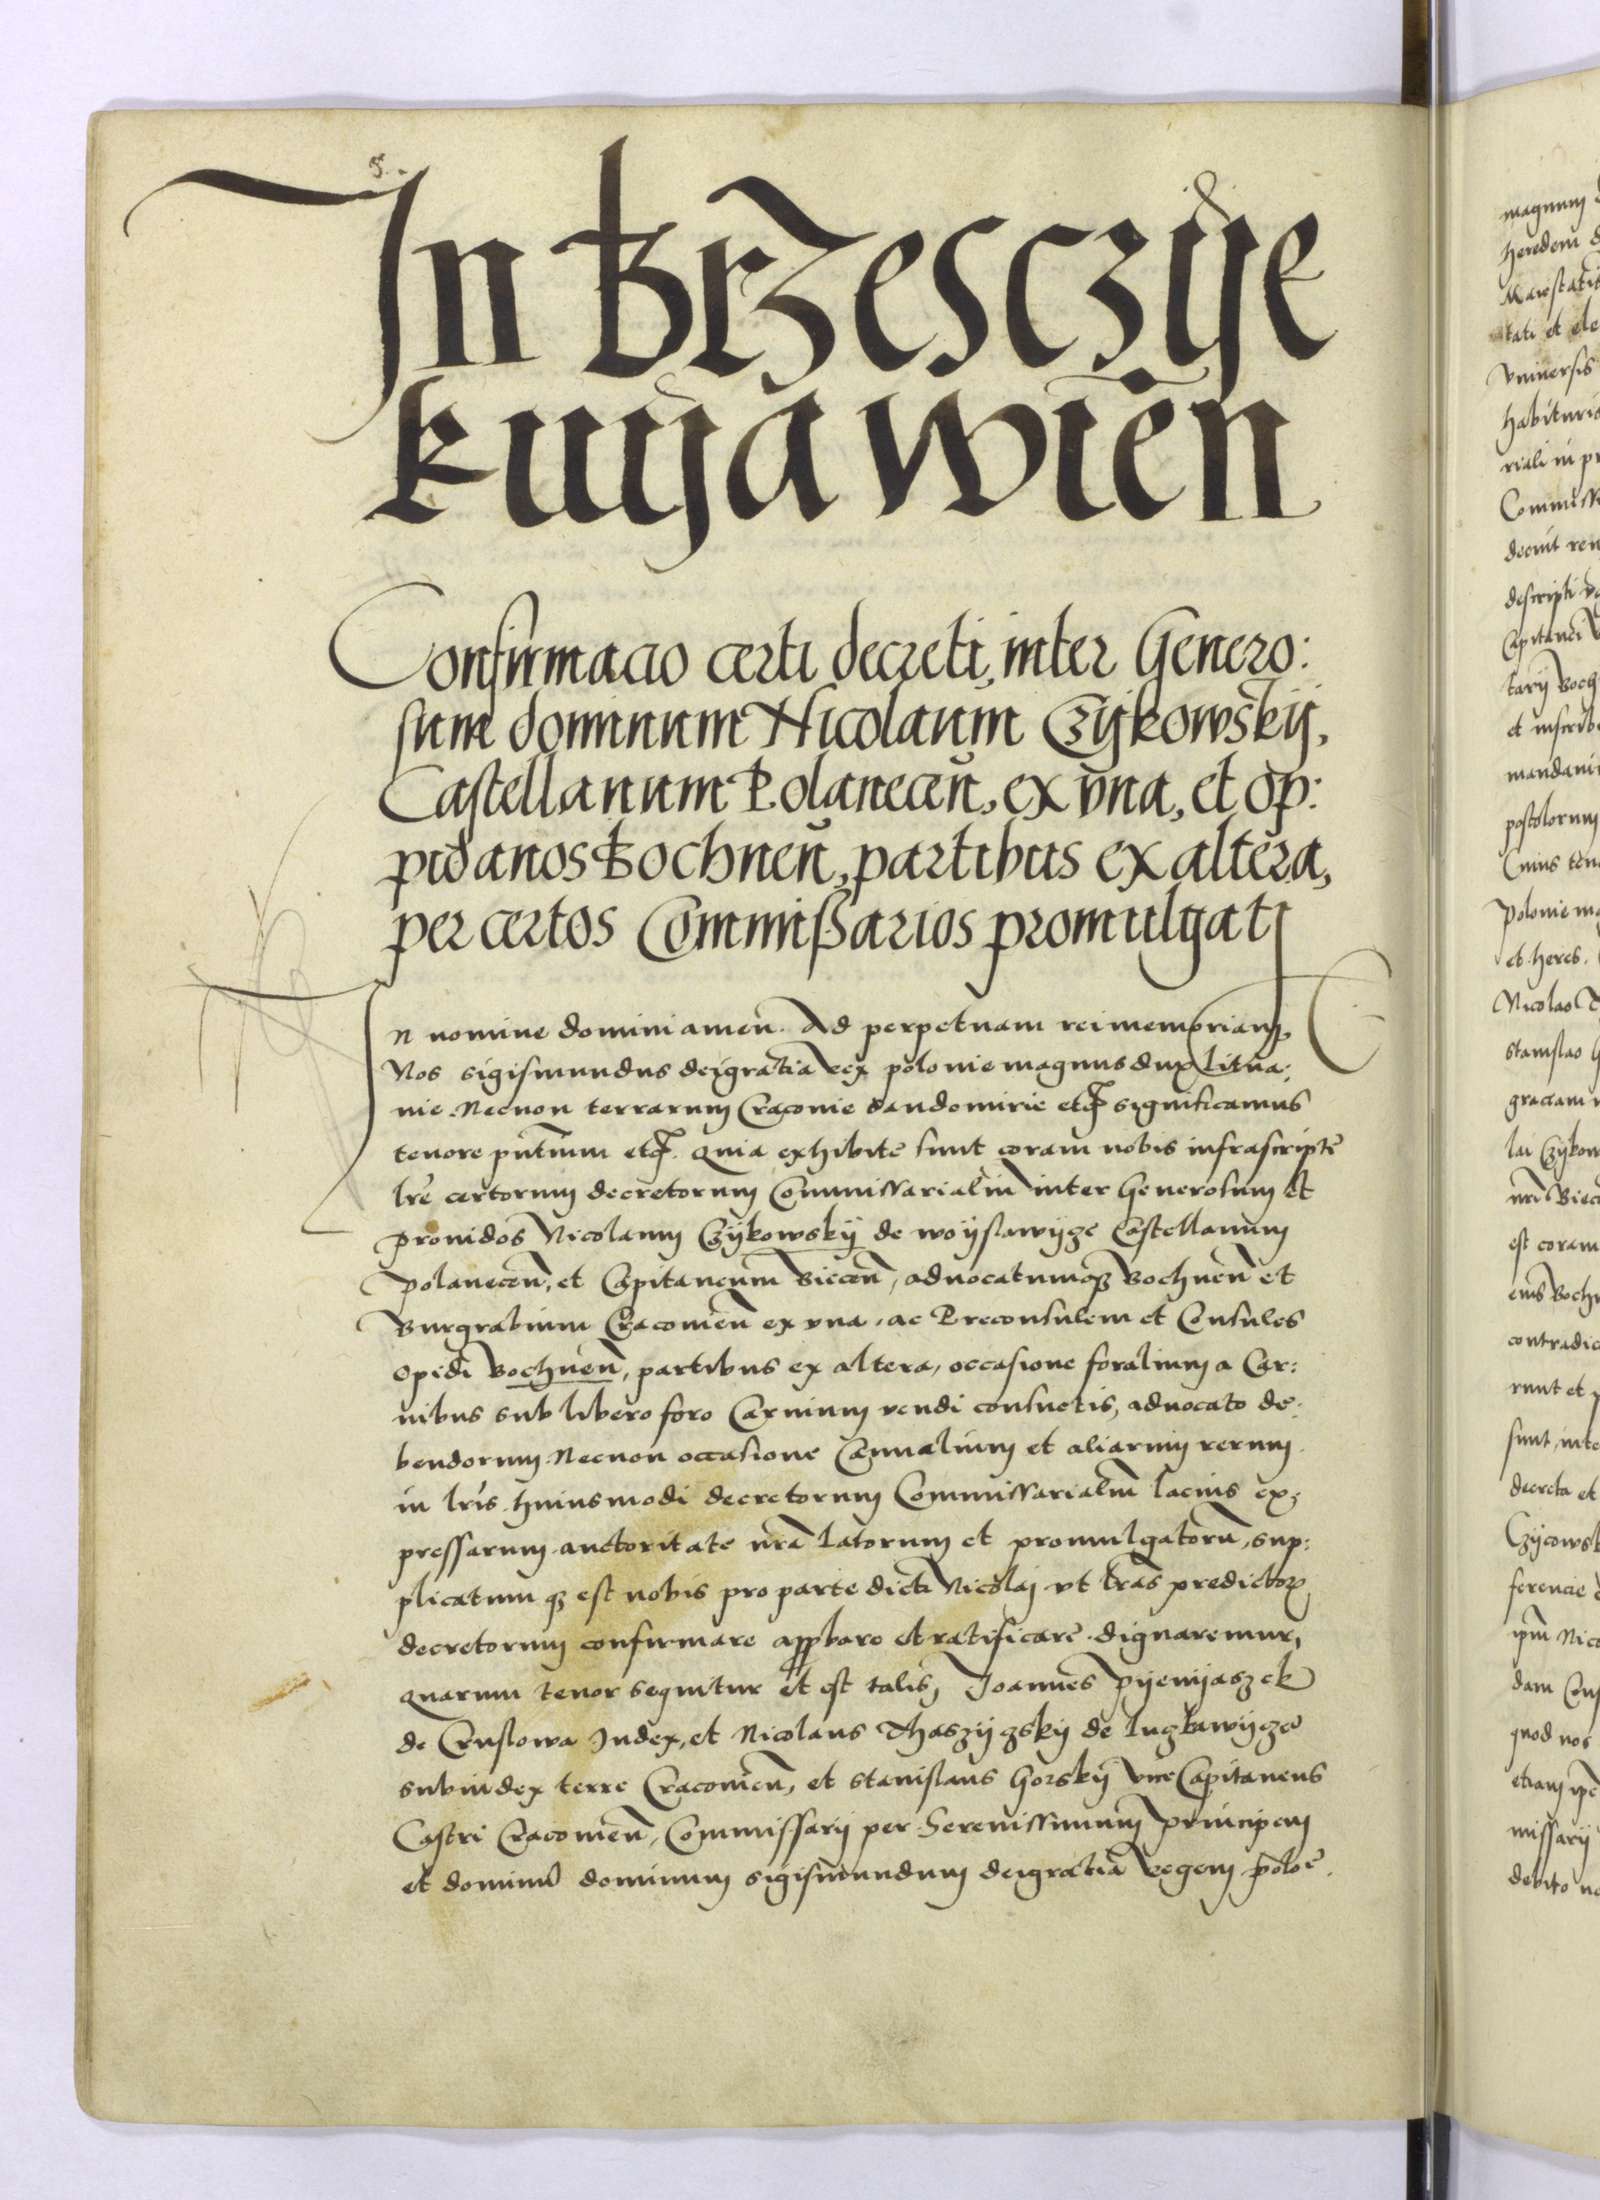 In Brzesczije
kuijawien̄
Confirmacio certi decreti, inter Genero:
sum dominum Nicolaum Czijkowskij,
Castellanum Polanecen̄, ex vna, et op:
pidanos Bochnen̄, partibus ex altera,
per certos Commissarios promulgati
In nomine domini amen. Ad perpetuam rei memoriam,
Nos sigismundus dei gratia rex polonie magnus dux Litua:
nie. Necnon terrarum Cracovie Sandomirie etc̄. significamus
tenore pn̄tium etc̄. Quia exhibite sunt coram nobis infrascripte
lr̄e certorum decretorum Commissarialiū inter Generosum et
prouidos Nicolaum Czijkowskij de woijslawijcze Castellanum
polanecen̄, et Capitaneum Biecen̄, aduocatumqȝ Bochnen̄ et
Burgrabium Cracouien̄ ex vna, ac Preconsulem et Consules
opidi Bochnen̄, partibus ex altera, occasione foralium a Car:
nibus sub libero foro Carnium vendi consuetis, aduocato de:
bendorum. Necnon occasione Cannalium et aliarum rerum
in lr̄is huiusmodi decretorum Commissarialiū lacius ex:
pressarum auctoritate nr̄a latorum et promulgatorū, sup:
plicatum qȝ est nobis pro parte dicti Nicolaj vt lr̄as predictoꝝ
decretorum confirmare approbare et ratificare dignaremur,
quarum tenor sequitur et est talis, Joannes pijenijaszek
de Cruslowa Judex, et Nicolaus Thaszijczskij de luczlawijcze
subiudex terre Cracouien̄, et stanislaus Gorskij vice Capitaneus
Castri Cracouien̄, Commissarij per Serenissimum principem
et dominū dominum sigismundum dei gratia regem polo͞e.
magnum
heredem
Maiestatis
tati et ele
vniuersis
habituris
riali in pr
descripti
Capitanei
et inscrib
postolorum
Cuius ten
polonie ma
et heres.
Nicolao
stanislao
graciam
lai Czijkow
est coram
contradic
runt et
sunt, inte
decreta et
Czijcowsk
ferencie
ipm̄ Nico
dam Cons
quod nos
etiam ip̄e
missarij
debito no